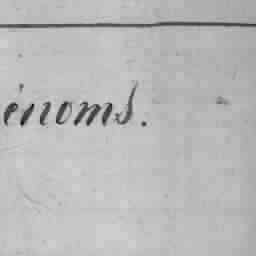 énoms.